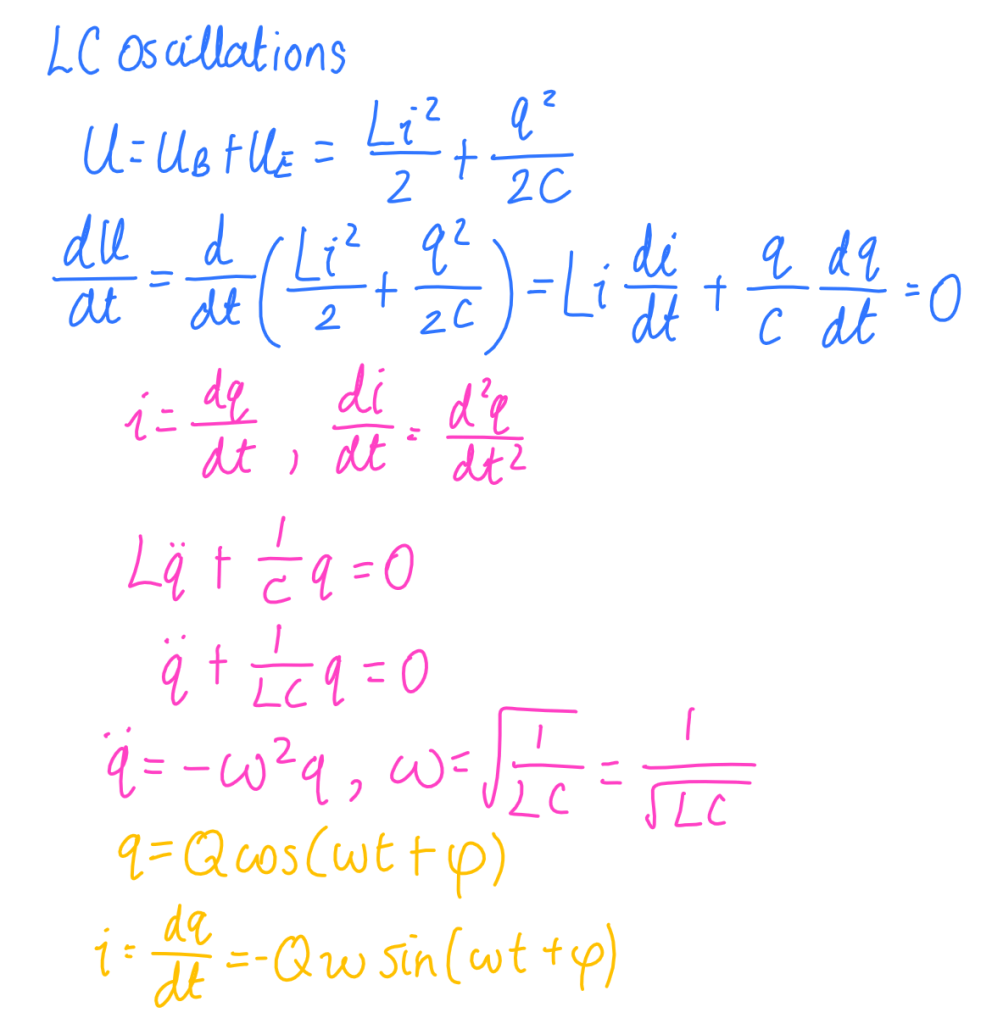 LC Oscillations
U = U_B + U_E = \frac{Li^2}{2} + \frac{q^2}{2C}
\frac{dU}{dt} = \frac{d}{dt}\left(\frac{Li^2}{2} + \frac{q^2}{2C}\right) = Li\frac{di}{dt} + \frac{q}{C}\frac{dq}{dt} = 0
i = \frac{dq}{dt}, \frac{di}{dt} = \frac{d^2q}{dt^2}
L\ddot{q} + \frac{1}{C}q = 0
\ddot{q} + \frac{1}{LC}q = 0
\ddot{q} = -\omega^2 q, \omega = \sqrt{\frac{1}{LC}} = \frac{1}{\sqrt{LC}}
q = Q\cos(\omega t + \varphi)
i = \frac{dq}{dt} = -Q\omega\sin(\omega t + \varphi)